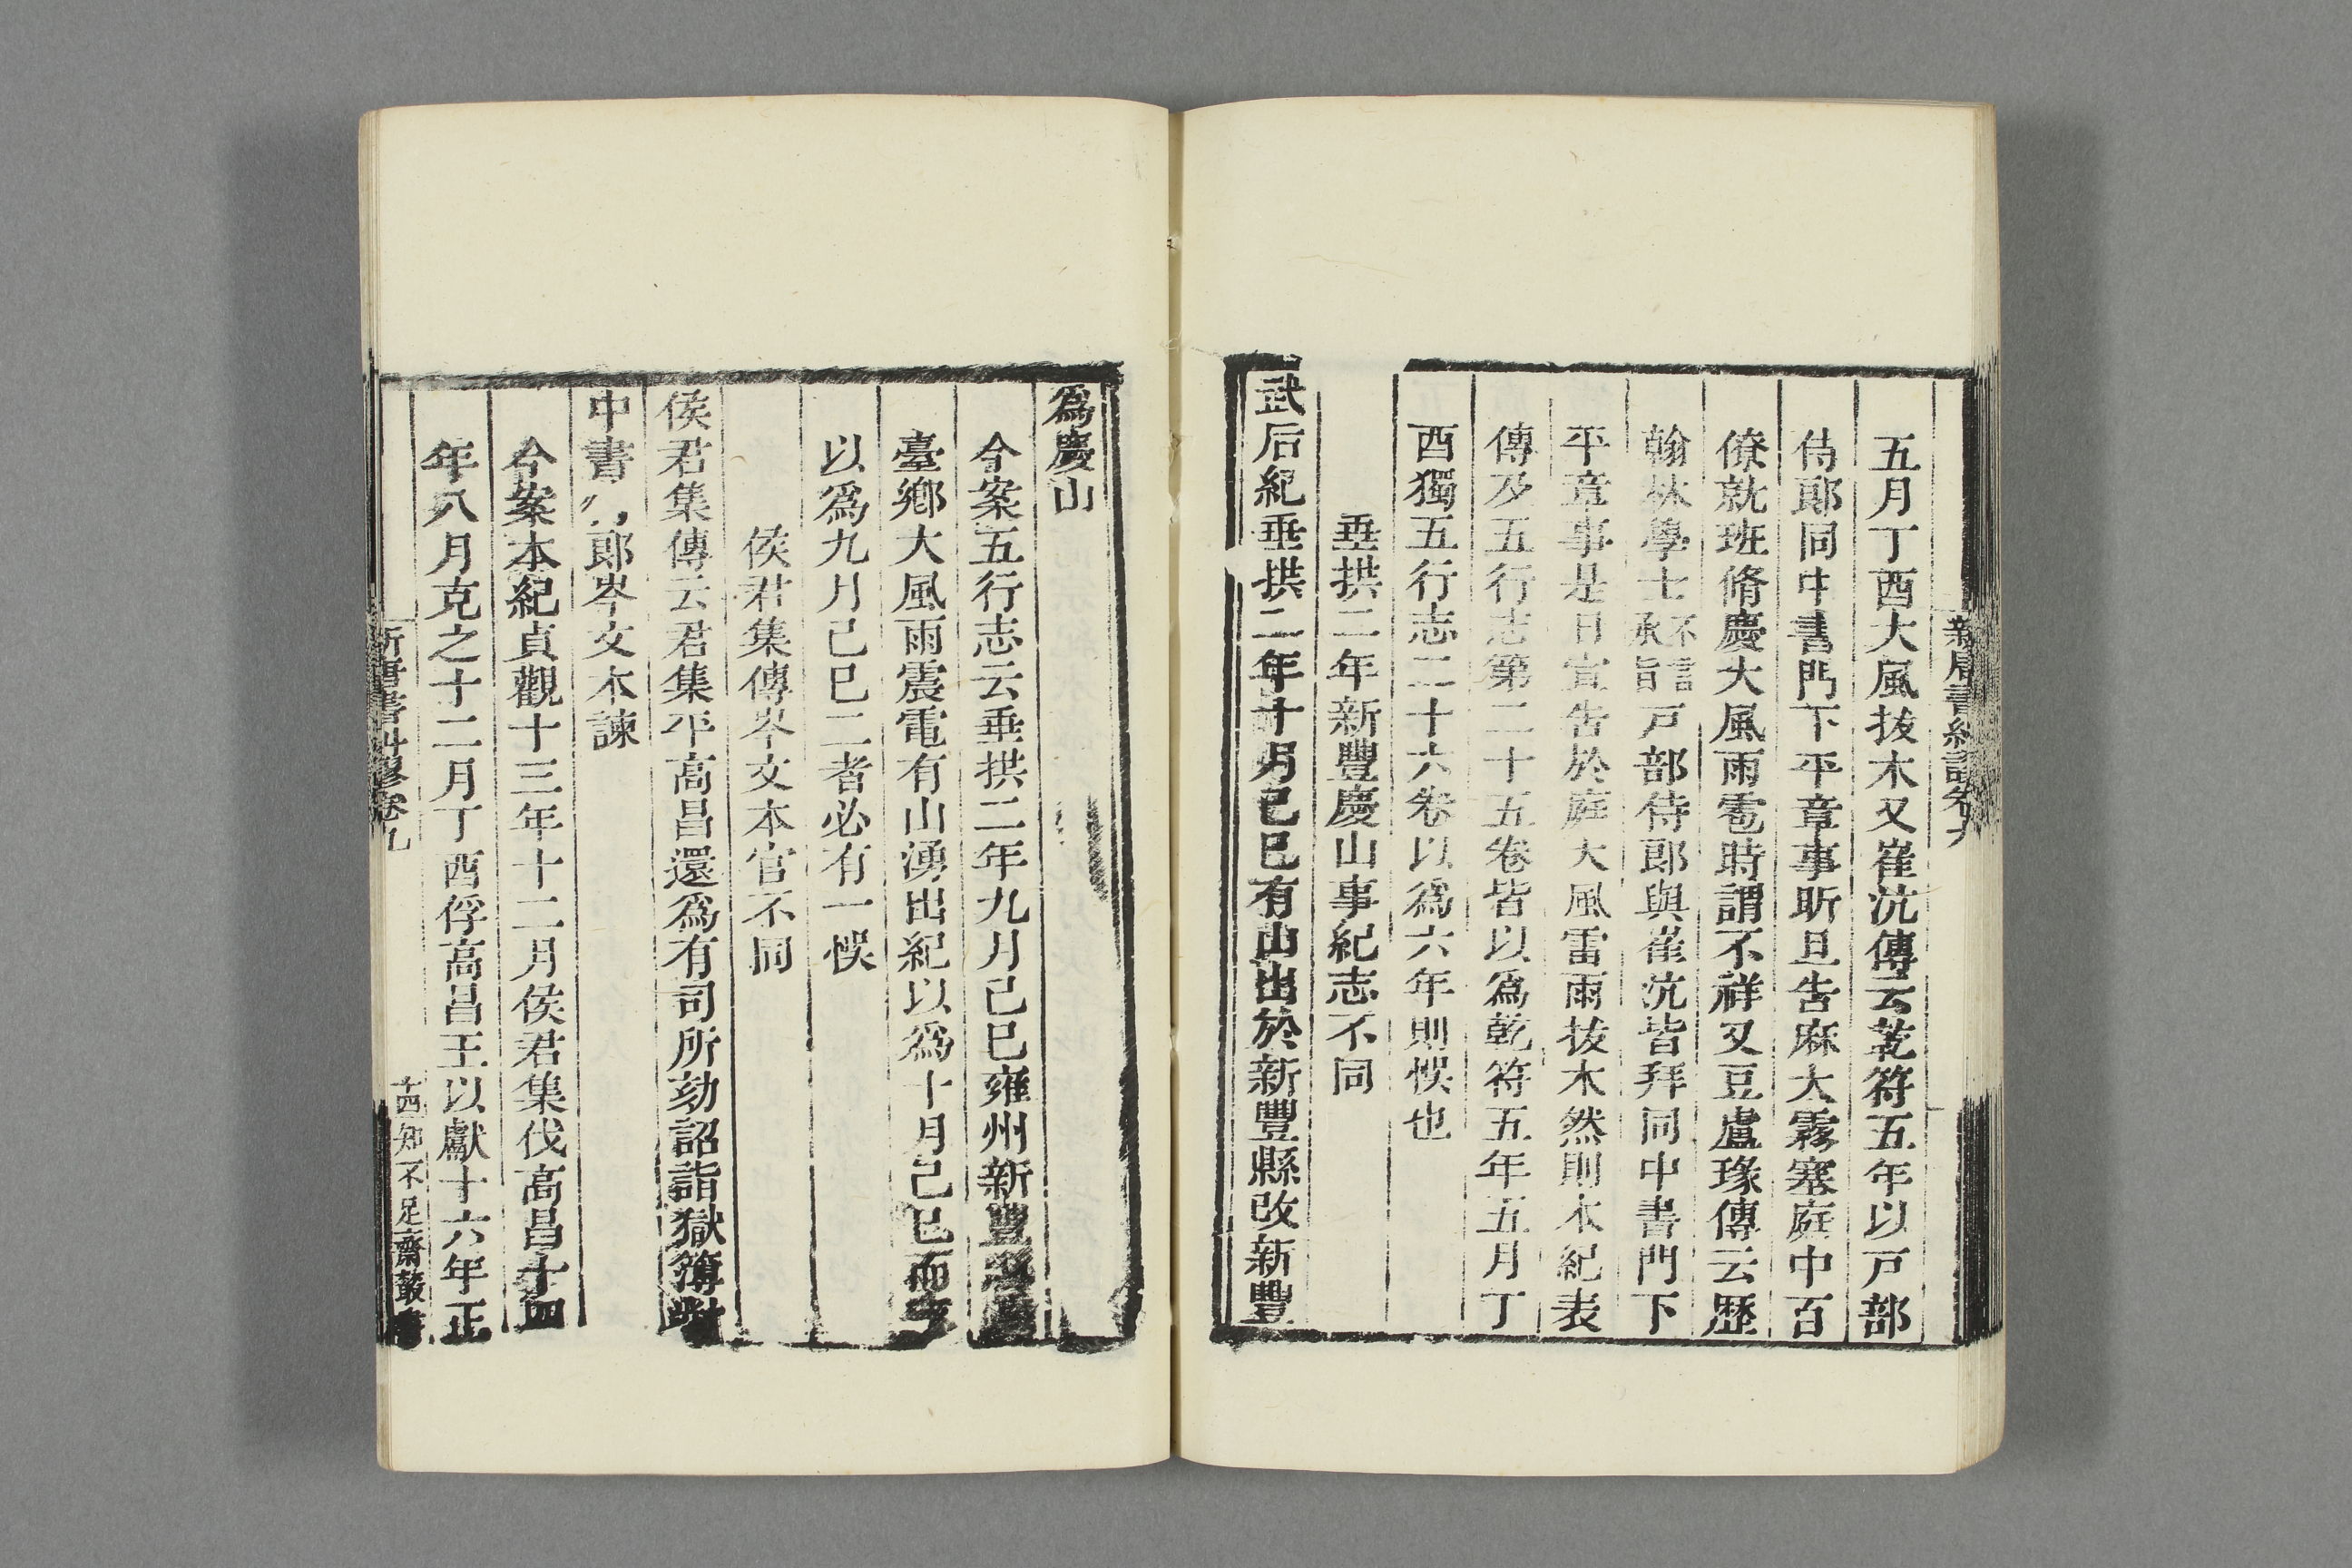 新唐書糾謬卷九
五月丁酉大風拔木又崔沆傳云乾符五年以戸部
侍郎同中書門下平章事昕旦告麻大霧塞庭中百
僚就班脩慶大風雨雹時謂不祥又豆盧瑑傳云歷
翰林學士不言承旨戸部侍郎與崔沆皆拜同中書門下
平章事是日宣告於庭大風雷雨拔木然則本紀表
傳及五行志第二十五卷皆以爲乾符五年五月丁
酉獨五行志二十六卷以爲六年則悞也
垂拱二年新豐慶山事紀志不同
武后紀垂拱二年十月己巳有山出於新豐縣改新豐
爲慶山
今案五行志云垂拱二年九月己巳雍州新豐
臺鄉大風雨震電有山湧出紀以爲十月己巳而
以爲九月己巳二者必有一悞
侯君集傳岑文本官不同
侯君集傳云君集平高昌還爲有司所劾詔詣獄簿對
中書郎岑文本諫
今案本紀貞觀十三年十二月侯君集伐高昌十四
年八月克之十二月丁酉俘高昌王以獻十六年正
新唐書糾謬卷九
十四 知不足齋叢書